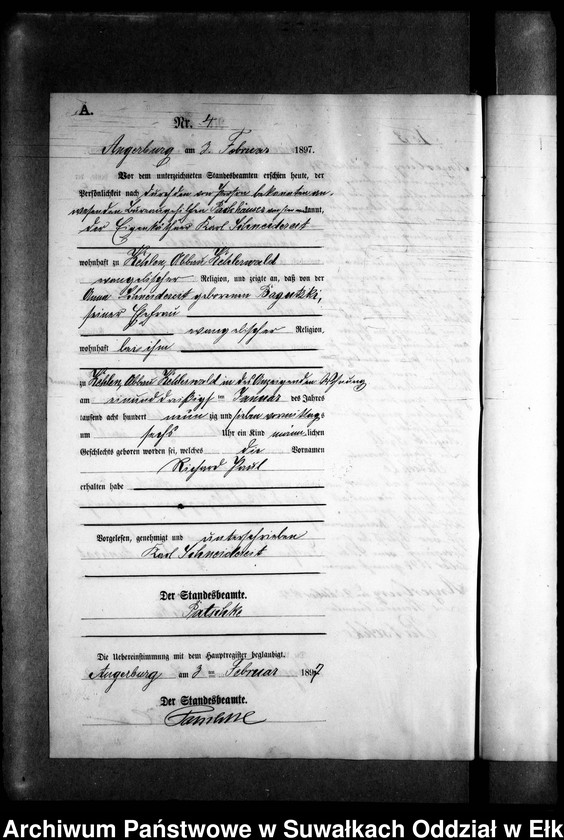 A.
Nr. 4
Angerburg am 3. Februar 1897.
Vor dem unterzeichneten Standesbeamten erschien heute, der
Persönlichkeit nach durch den von Person bekannten an-
wesenden Bureaugehilfen Packhäuser kannt,
der Eigenkäthner Karl Schneidereit
wohnhaft zu Kehlen, Abbau Kehlerwald
evangelischer Religion, und zeigte an, daß von der
Anna Schneidereit geborenen Baguski,
seiner Ehefrau
evangelischer Religion,
wohnhaft bei ihm
zu Kehlen, Abbau Kehlerwald in des Anzeigenden Wohnung
am einunddreißigsten Januar des Jahres
tausend acht hundert neunzig und sieben vormittags
um sechs Uhr ein Kind männlichen
Geschlechts geboren worden sei, welches die Vornamen
Richard Paul
erhalten habe
Vorgelesen, genehmigt und unterschrieben
Karl Schneidereit
Der Standesbeamte.
Die Uebereinstimmung mit dem Hauptregister beglaubigt.
Angerburg am 3ten Februar 1897
Der Standesbeamte.
Archiwum Państwowe w Suwałkach Oddział w Ełk